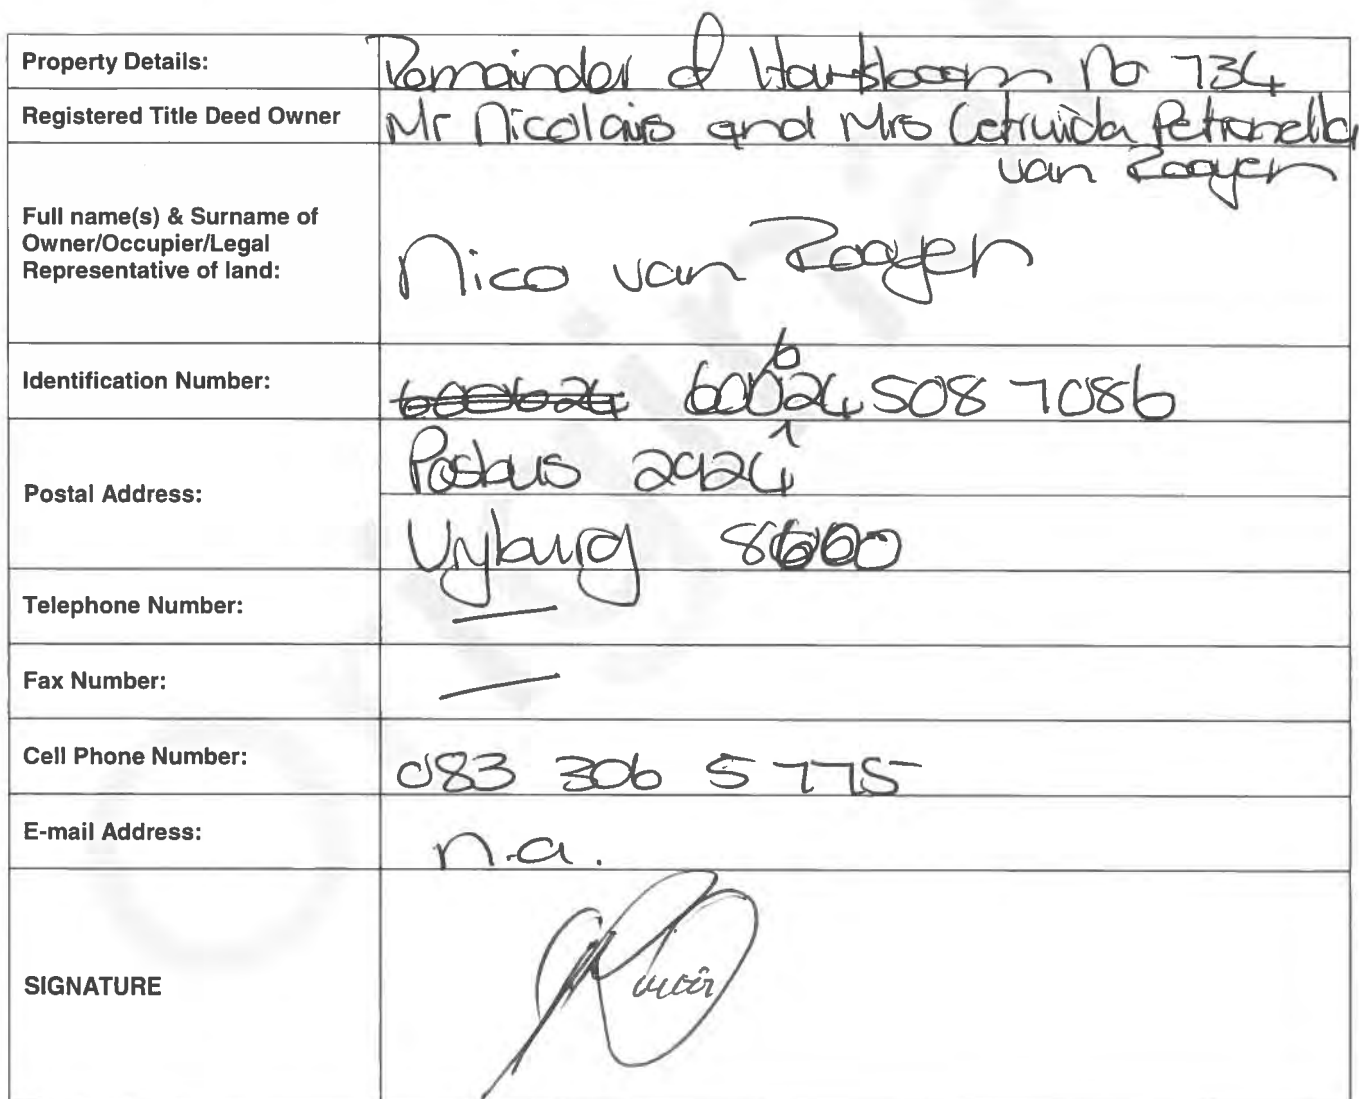 Property Details: Remainder of Hartsboom No 734
Registered Title Deed Owner Mr Nicolaas and Mrs Cetruida Petronella
van Rooyen
Full name(s) & Surname of
Owner/Occupier/Legal
Representative of land:
Nico van Rooyen
Identification Number: 600624 600624 508 7086
Postal Address:
Posbus 2924
Vryburg 8600
Telephone Number: —
Fax Number: —
Cell Phone Number: 083 306 5 775
E-mail Address: n.a.
SIGNATURE